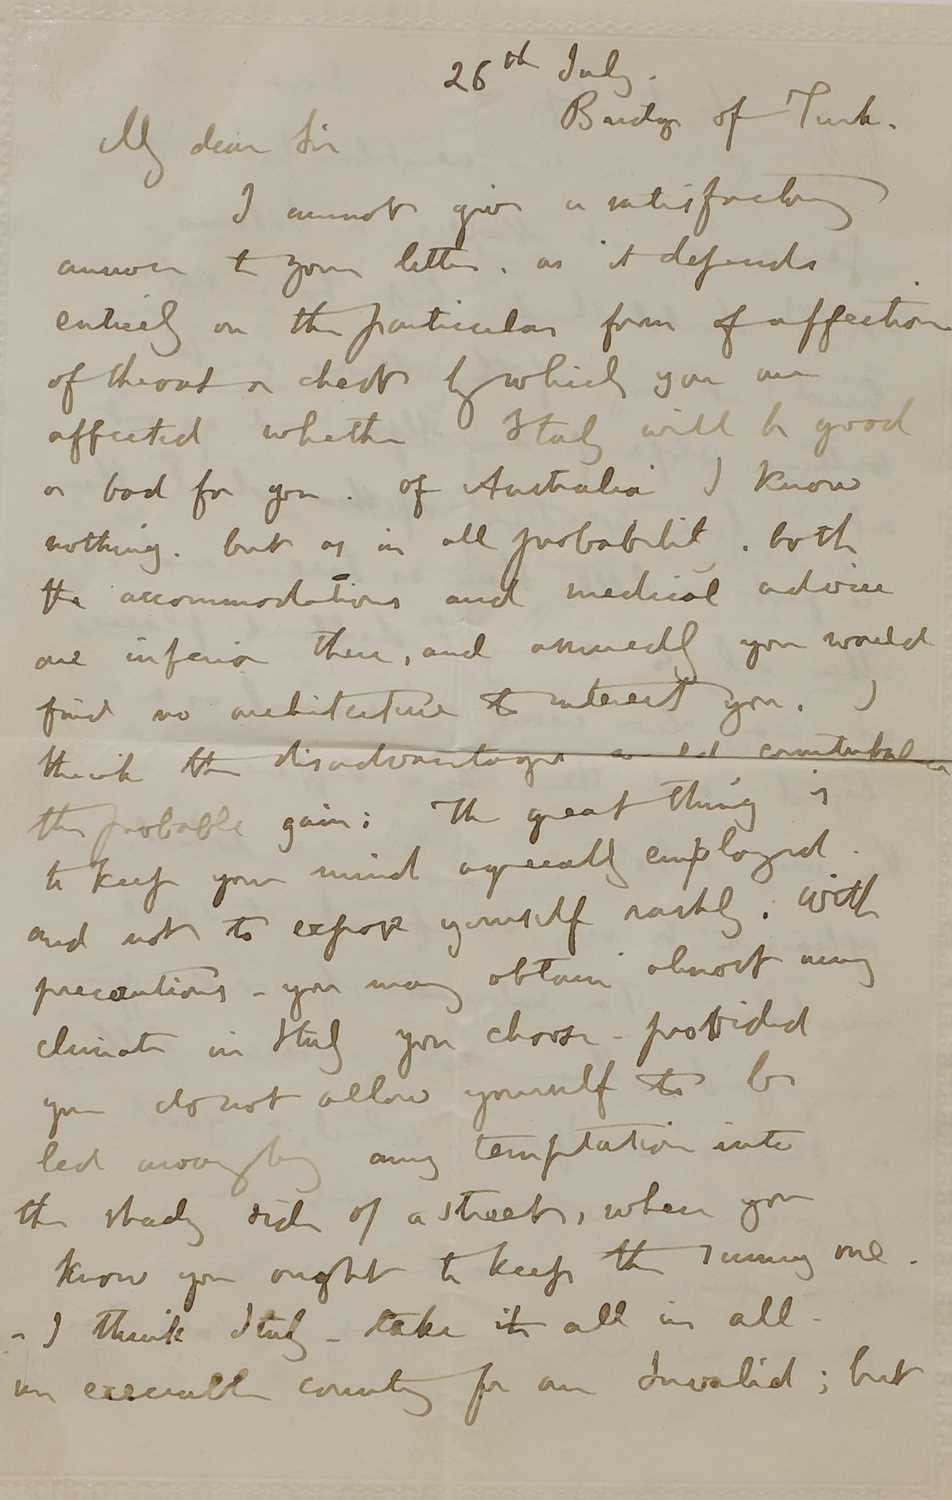 26th July.
Bridge of Turk.
My dear Sir
I cannot give a satisfactory
answer to your letter. as it depends
entirely on the particular form of affection
of throat or chest by which you are
affected whether Italy will be good
or bad for you. Of Australia I know
nothing. but as in all probability. both
the accommodations and medical advice
are inferior there, and assuredly you would
find no architecture to interest you. I
think the disadvantages would counterbalance
the probable gain: The great thing is
to keep your mind agreeably employed.
and not to expose yourself rashly. With
precautions - you may obtain almost any
climate in Italy you choose - provided
you do not allow yourself to be
led away by any temptation into
the shady side of a street, when you
know you ought to keep the sunny one.
- I think Italy - take it all in all -
an execrable country for an Invalid; but